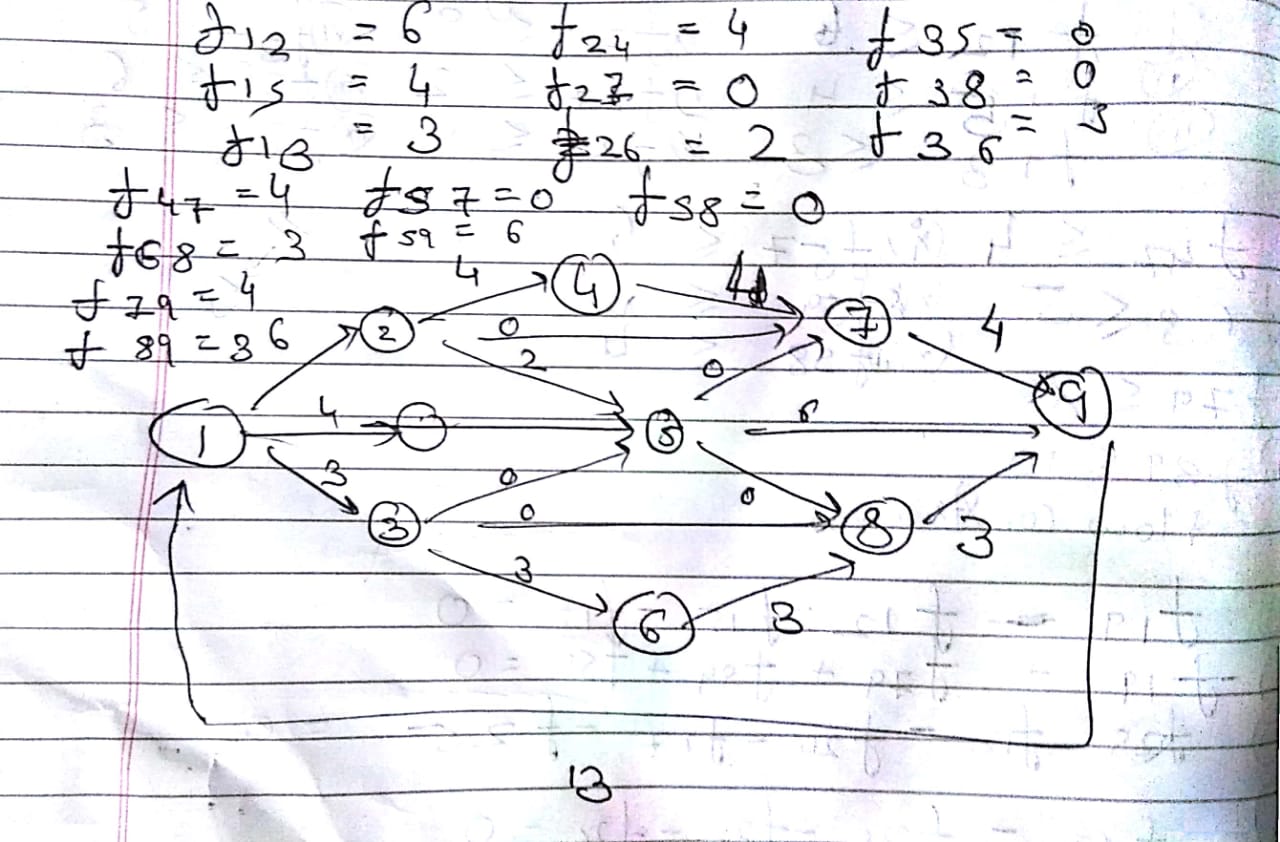 f12 = 6 f24 = 4 f35 = 0
f15 = 4 f27 = 0 f38 = 0
f13 = 3 f26 = 2 f36 = 3
f47 = 4 f57 = 0 f58 = 0
f68 = 3 f59 = 6
f79 = 4
f89 = 3 6
4 4 4
2 0 7 4
2 0
1 4 5 6 9
3 0 0
3 0 8 3
3 6 3
13